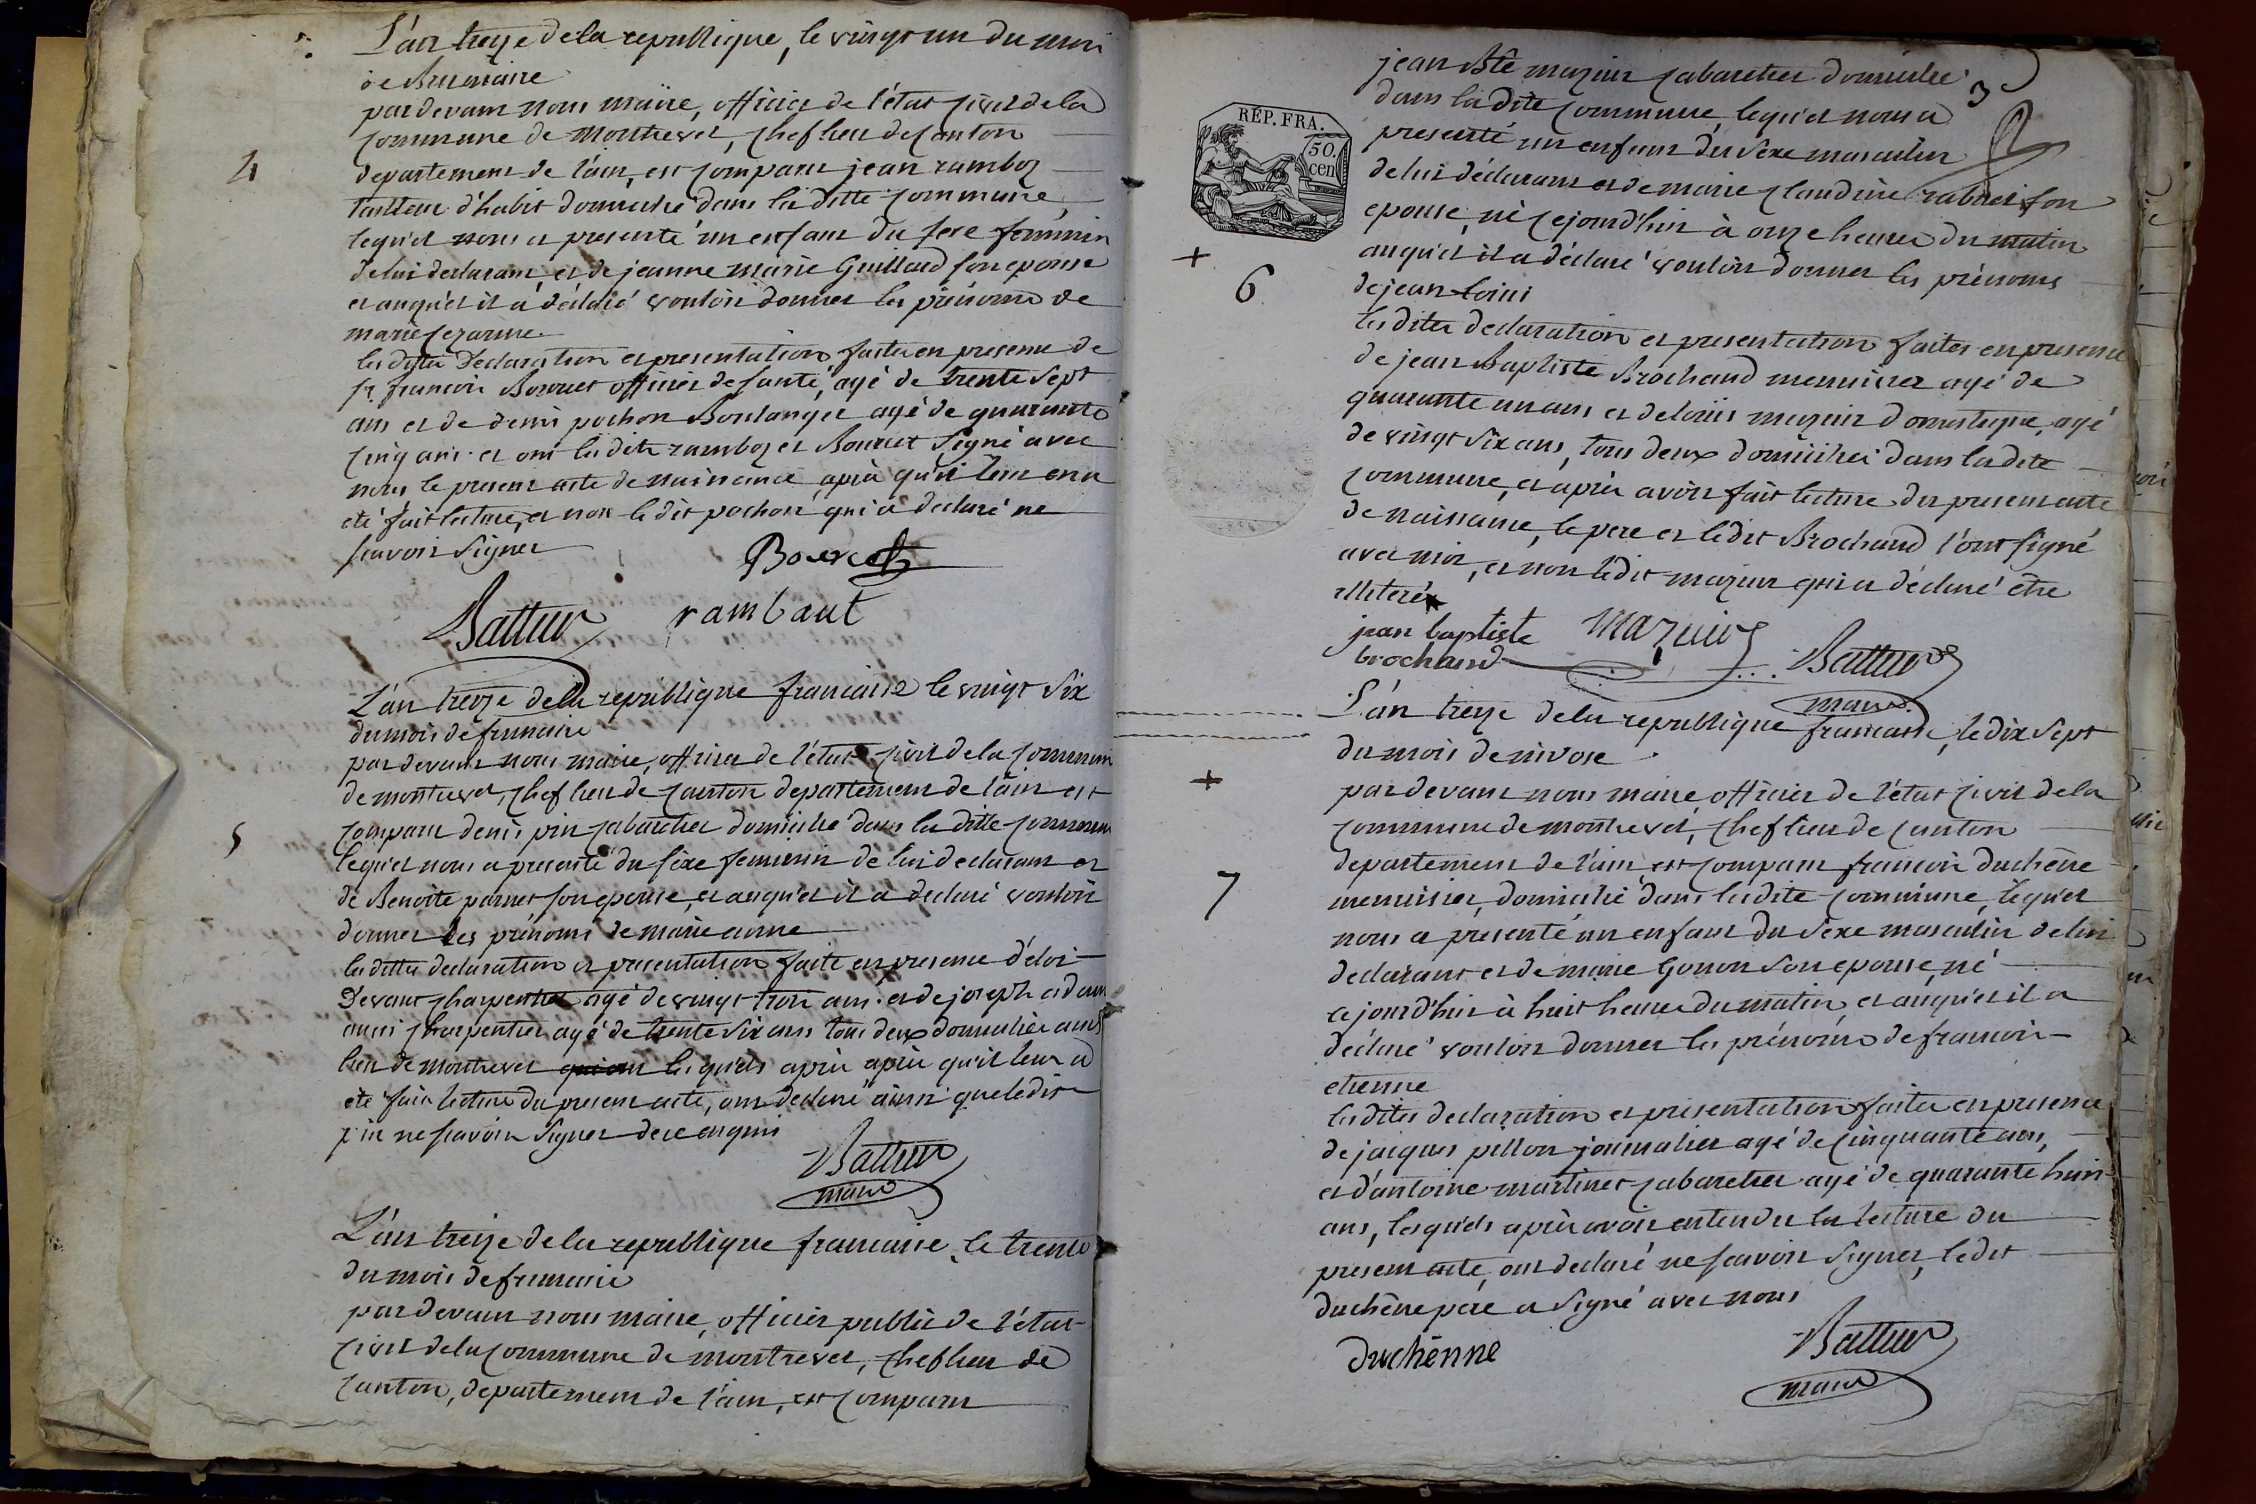 L'an treize de la republique, le vingt un du mois
de Brumaire
par devant nous maire, officier de l'état civil de la
commune de montrevel, chef lieu de canton
4
departement de l'ain, est comparu jean ramboz
tailleur d'habit domicilié dans la ditte commune,
lequel nous a presenté un enfant du sexe feminin
de lui declarant et de jeanne marie Guillard son epouse
et auquel il a déclaré vouloir donner les prénoms de
marie cezarine
les dittes Declaration et presentation faites en presence de
sr francois Bourcet officier de santé, agé de trente sept
ans et de denis pochon Boulanger agé de quarante
cinq ans. et ont les dits ramboz et Bourcet signé avec
nous le present acte de naissance après qu'il leur en a
eté fait lecture, et non le dit pochon qui a declaré ne
scavoir signer
Bourcet
Battur rambaut
L'an treize de la republique francaise le vingt six
du mois de frimaire
par devant nous maire, officier de l'état civil de la commune
de montrevel, chef lieu de canton departement de l'ain est
5
comparu denis pin cabaretier domicilié dans la ditte commune
lequel nous a presenté du sexe feminin de lui declarant et
de Benoite son epouse, et auquel il a declaré vouloir
donner les prénoms de marie anne
les dittes declaration et presentation faite en presence d'éloi
Devaut charpentier agé de vingt trois ans. et de joseph adam
aussi charpentier agé de trente six ans tous deux domiciliés au
lieu de montrevel qui ont lesquels après après qu'il leur a
eté fait lecture du present acte, ont declaré ainsi que ledit
pin ne scavoir signer de ce enquis
Battur
maire
L'an treize de la republique francaise, le trente
du mois de frimaire
par devant nous maire, officier public de l'état
civil de la commune de montrevel, chef lieu de
canton, departement de l'ain, est comparu
3
jean Bte mazuir cabaretier domicilié
dans la dite commune, lequel nous a
RÉP. FRA.
50.
cen
presenté un enfant du sexe masculin
de lui déclarant et de marie claudine rabuel son
epouse, né cejourd'hui à onze heures du matin
auquel il a déclaré vouloir donner les prénoms
6
de jean loüis
les dites declaration et presentation faites en presence
de jean Baptiste Brochand menuisier agé de
quarante un ans et de loüis mazuir domestique, agé
de vingt six ans, tous deux domiciliés dans la dite
commune, et après avoir fait lecture du present acte
de naissance, le pere et ledit Brochand l'ont signé
avec moi, et non ledit mazuir qui a déclaré etre
illiteré
jean baptiste mazuir
brochand Battur
maire
L'an treize de la republique francaise, le dix sept
du mois de nivose
par devant nous maire officier de l'état civil de la
commune de montrevel, chef lieu de canton
departement de l'ain est comparu francois duchêne
7
menuisier, domicilié dans la dite commune, lequel
nous a presenté un enfant du sexe masculin de lui
declarant et de marie Gonon son epouse, né
cejourd'hui à huit heures du matin, et auquel il a
déclaré vouloir donner les prénoms de francois
etienne
les dites declaration et presentation faites en presence
de jacques pillon journalier agé de cinquante ans,
et d'antoine martinet cabaretier agé de quarante huit
ans, lesquels après avoir entendu la lecture du
present acte, ont declaré ne scavoir signer, ledit
duchêne pere a signé avec nous
duchênne Battur
maire